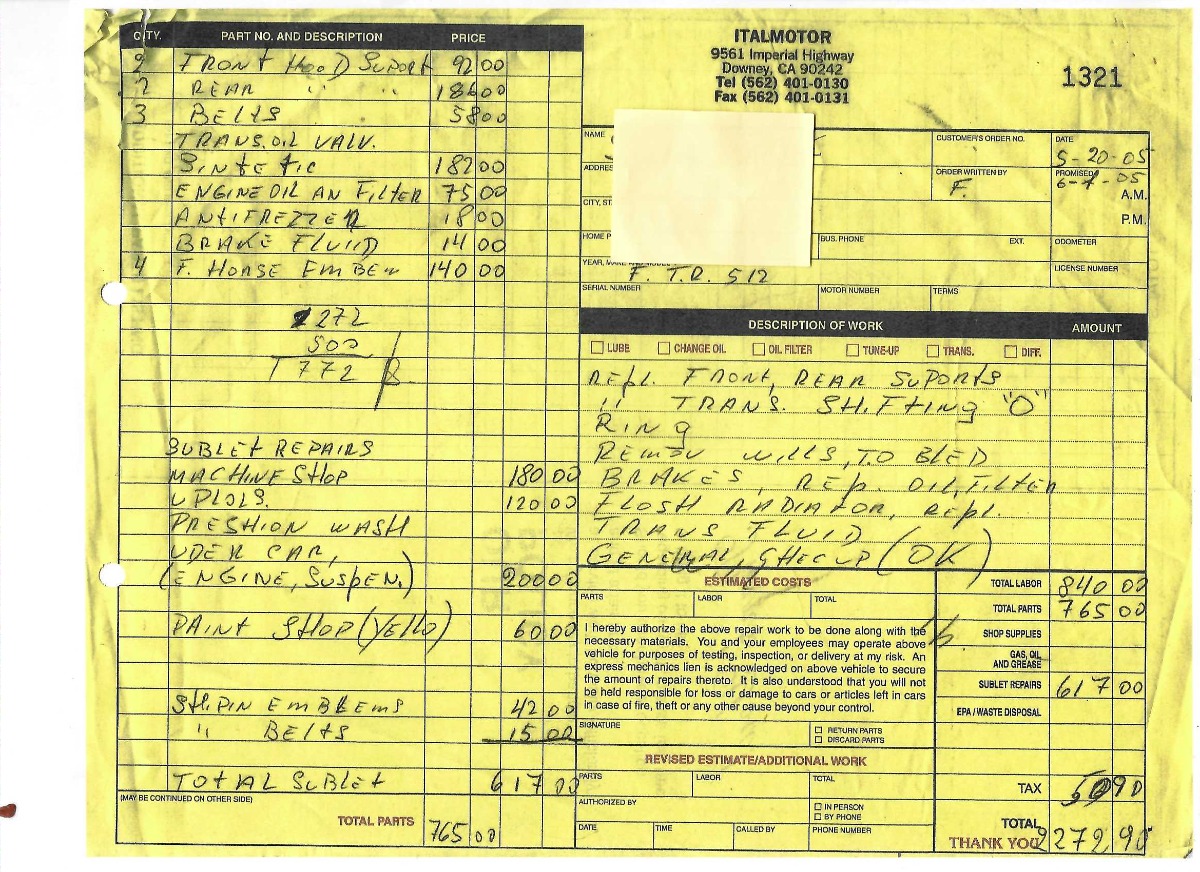 Q'TY. PART NO. AND DESCRIPTION PRICE
2 FRONT HOOD SUPORT 92 00
2 REAR " " 186 00
3 BELTS 58 00
TRANS. OIL VALV.
SINTETIC 182 00
ENGINE OIL AN FILTER 75 00
ANTIFREZZER 18 00
BRAKE FLUID 14 00
4 F. HORSE EMBEM 140 00
2272
500
1772
SUBLET REPAIRS
MACHINE SHOP 180 00
UPLOLS. 120 00
PRESHION WASH
UDER CAR,
(ENGINE, SUSPEN.) 200 00
PAINT SHOP (YELLO) 60 00
SHIPIN EMBLEMS 42 00
" BELTS 15 00
TOTAL SUBLET 617 00
(MAY BE CONTINUED ON OTHER SIDE)
TOTAL PARTS 765 00
ITALMOTOR
9561 Imperial Highway
Downey, CA 90242
Tel (562) 401-0130
Fax (562) 401-0131
1321
NAME
CUSTOMER'S ORDER NO.
DATE
5-20-05
ADDRES
ORDER WRITTEN BY
F.
PROMISED
6-7-05
A.M.
P.M.
CITY, ST
HOME P
BUS. PHONE EXT.
ODOMETER
YEAR, MAKE AND MODEL
F. T.R. 512
LICENSE NUMBER
SERIAL NUMBER MOTOR NUMBER TERMS
DESCRIPTION OF WORK AMOUNT
LUBE CHANGE OIL OIL FILTER TUNE-UP TRANS. DIFF.
REPL. FRONT, REAR SUPORTS
" TRANS. SHIFTING "O"
RING
REMOV WILLS, TO BLED
BRAKES, REP. OIL, FILTER
FLOSH RADIATOR, REPL.
TRANS FLUID
GENERAL, GHECUP (OK)
ESTIMATED COSTS
PARTS LABOR TOTAL
I hereby authorize the above repair work to be done along with the
necessary materials. You and your employees may operate above
vehicle for purposes of testing, inspection, or delivery at my risk. An
express mechanics lien is acknowledged on above vehicle to secure
the amount of repairs thereto. It is also understood that you will not
be held responsible for loss or damage to cars or articles left in cars
in case of fire, theft or any other cause beyond your control.
SIGNATURE
RETURN PARTS
DISCARD PARTS
REVISED ESTIMATE/ADDITIONAL WORK
PARTS LABOR TOTAL
AUTHORIZED BY
IN PERSON
BY PHONE
DATE TIME CALLED BY PHONE NUMBER
TOTAL LABOR 840 00
TOTAL PARTS 765 00
SHOP SUPPLIES
GAS, OIL
AND GREASE
SUBLET REPAIRS 617 00
EPA / WASTE DISPOSAL
TAX 50 90
TOTAL
THANK YOU 2272 90